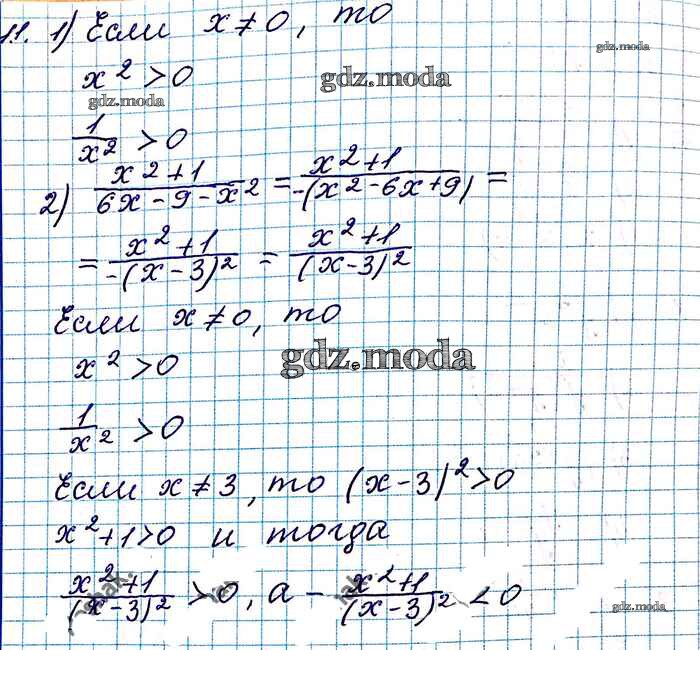 11. 1) Если x ≠ 0, то
gdz.moda
x² > 0
gdz.moda
gdz.moda
1/x² > 0
2) (x² + 1)/(6x - 9 - x²) = (x² + 1)/(-(x² - 6x + 9)) =
= (x² + 1)/(-(x - 3)²) = (x² + 1)/((x - 3)²)
Если x ≠ 0, то
x² > 0
gdz.moda
1/x² > 0
Если x ≠ 3, то (x - 3)² > 0
x² + 1 > 0 и тогда
(x² + 1)/((x - 3)²) > 0, а - (x² + 1)/((x - 3)²) < 0
gdz.moda